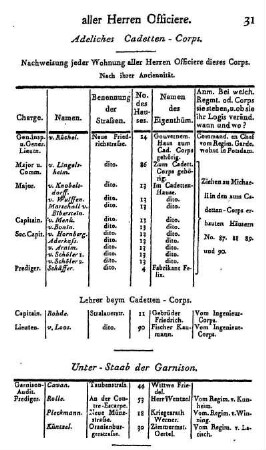 aller Herren Officiere. 31
Adeliches Cadetten - Corps.
Nachweisung jeder Wohnung aller Herren Officiere dieses Corps.
Nach ihrer Anciennität.
Charge. Namen. Benennung der Straßen. No. des Hauses. Namen des Eigenthüm. Anm. Bei welch. Regmt. od. Corps sie stehen, u. ob sie ihr Logis veränd. wann und wo?
Gen. insp. u. Gener. Lieutn. v. Rüchel. Neue Friedrichstraße. 24 Gouvernem. Haus zum Cad. Corps gehörig. Command. en Chef vom Regim. Garde, wohnt in Potsdam.
Major u. Comm. v. Lingelsheim. dito. 86 Zum Cadett. Corps gehörig.
Major. v. Knobelsdorff. dito. 13 Im Cadetten-Hause.
v. Wulffen. dito. 13 dito.
Marschall v. Biberstein. dito. 13 dito.
Capitain. v. Menk. dito. 13 dito.
v. Bonin. dito. 13 dito.
Sec. Capit. v. Hornberg. dito. 13 dito.
Aderkass. dito. 13 dito.
v. Arnim. dito. 13 dito.
v. Schöler 1. dito. 13 dito.
v. Schöler 2. dito. 13 dito.
Prediger. Schäffer. dito. 4 Fabrikant Felix.
Ziehen zu Michael in den zum Cadetten-Corps erbauten Häusern No. 87. 88 89. und 90.
Lehrer beym Cadetten - Corps.
Capitain. Rohde. Stralauerstr. 11 Gebrüder Friedrich. Vom Ingenieur-Corps.
Lieuten. v. Laos. dito. 90 Fischer Kaumann. Vom Ingenieur-Corps.
Unter - Staab der Garnison.
Garnison-Audit. Cavan. Taubenstraß. 46 Wittwe Friedel.
Prediger. Rolle. An der Contre-Escarpe. 50 Herr Wentzel Vom Regim. v. Kunheim.
Pleckmann. Neue Münzstraße. 18 Kriegsrath Werner. Vom Regim. v. Winning.
Küntzel. Oranienburgerstraße. 30 Zimmermst. Oertel. Vom Regim. v. Larisch.